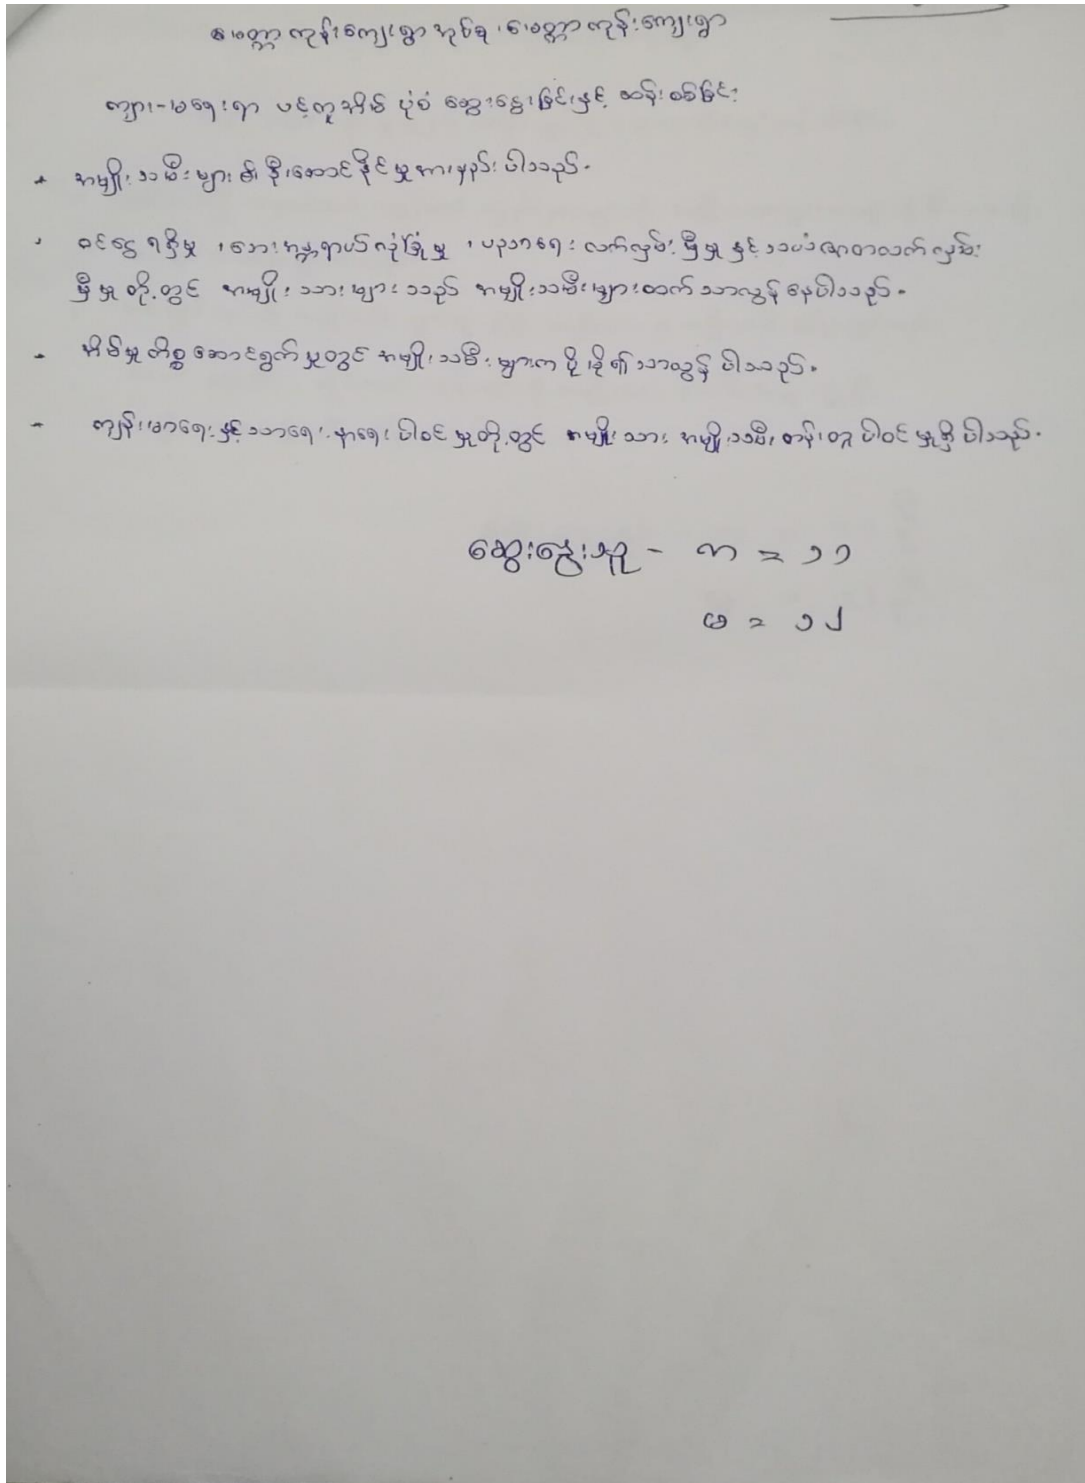 မေတ္တာကုန်းကျေးရွာအုပ်စု၊ မေတ္တာကုန်းကျေးရွာ
ကျား-မရေးရာ ပင့်ကူအိမ် ပုံစံ ဆွေးနွေးခြင်းနှင့် ဆန်းစစ်ခြင်း
- အမျိုးသမီးများ၏ ဦးဆောင်နိုင်မှုအားနည်းပါသည်။
- ဝင်ငွေရရှိမှု ၊ ဘေးအန္တရာယ်လုံခြုံမှု ၊ ပညာရေး လက်လှမ်းမှီမှု နှင့် သယံဇာတလက်လှမ်း
မှီမှုတို့တွင် အမျိုးသားများသည် အမျိုးသမီးများထက် သာလွန်နေပါသည်။
- အိမ်မှုကိစ္စဆောင်ရွက်မှုတွင် အမျိုးသမီးများက ပို၍ သာလွန်ပါသည်။
- ကျန်းမာရေးနှင့် သာရေး၊ နာရေး ပါဝင်မှုတို့တွင် အမျိုးသား အမျိုးသမီး တန်းတူ ပါဝင်မှုရှိပါသည်။
ဆွေးနွေးသူ - က = ၁၁
မ = ၁၂